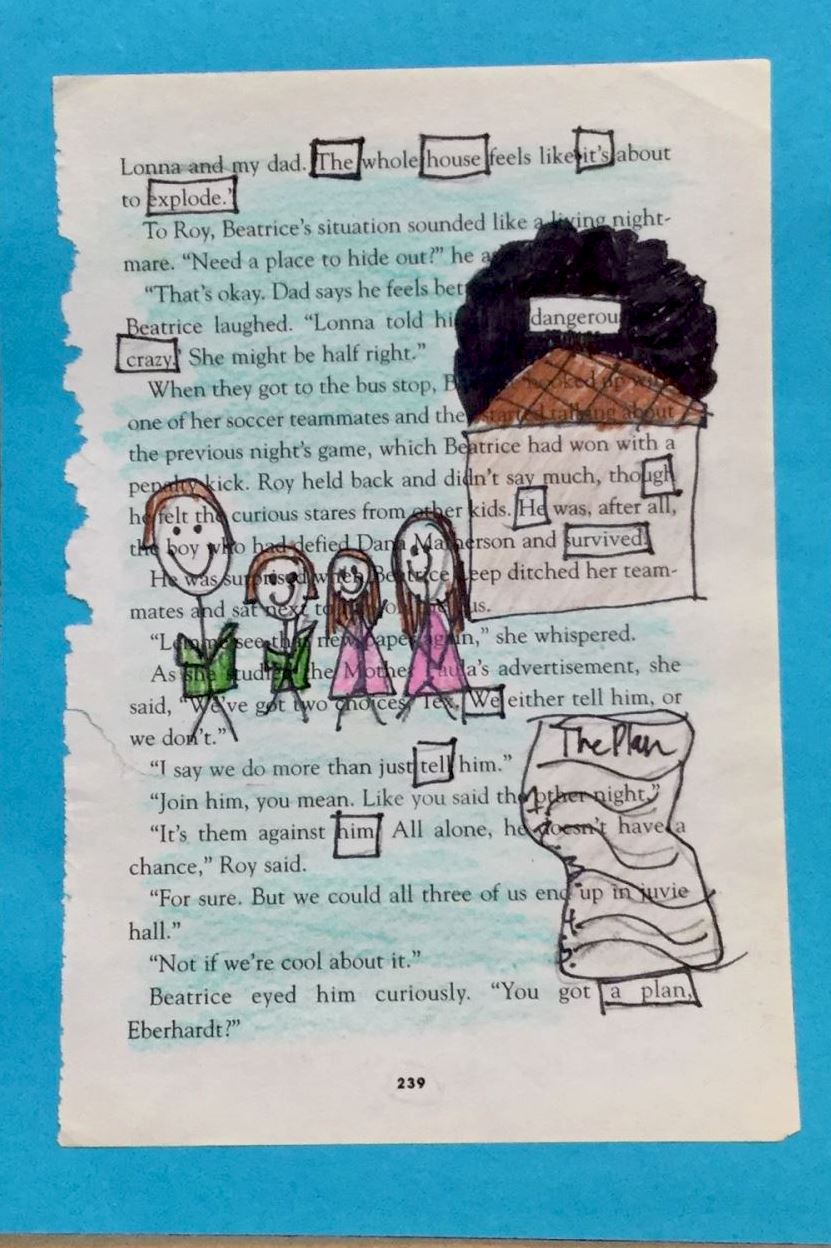 Lonna and my dad. The whole house feels like it's about
to explode."
To Roy, Beatrice's situation sounded like a living night-
mare. "Need a place to hide out?" he a
"That's okay. Dad says he feels bet
Beatrice laughed. "Lonna told hi dangerou
crazy. She might be half right."
When they got to the bus stop, B hooked up with
one of her soccer teammates and the started talking about
the previous night's game, which Beatrice had won with a
penalty kick. Roy held back and didn't say much, though
he felt the curious stares from other kids. He was, after all,
the boy who had defied Dana Matherson and survived.
He was surprised when Beatrice Leep ditched her team-
mates and sat next to him on the bus.
"Lemme see that newspaper again," she whispered.
As she studied the Mother Paula's advertisement, she
said, "We've got two choices, Tex. We either tell him, or
we don't."
"I say we do more than just tell him."
The Plan
"Join him, you mean. Like you said the other night."
"It's them against him. All alone, he doesn't have a
chance," Roy said.
"For sure. But we could all three of us end up in juvie
hall."
"Not if we're cool about it."
Beatrice eyed him curiously. "You got a plan,
Eberhardt?"
239